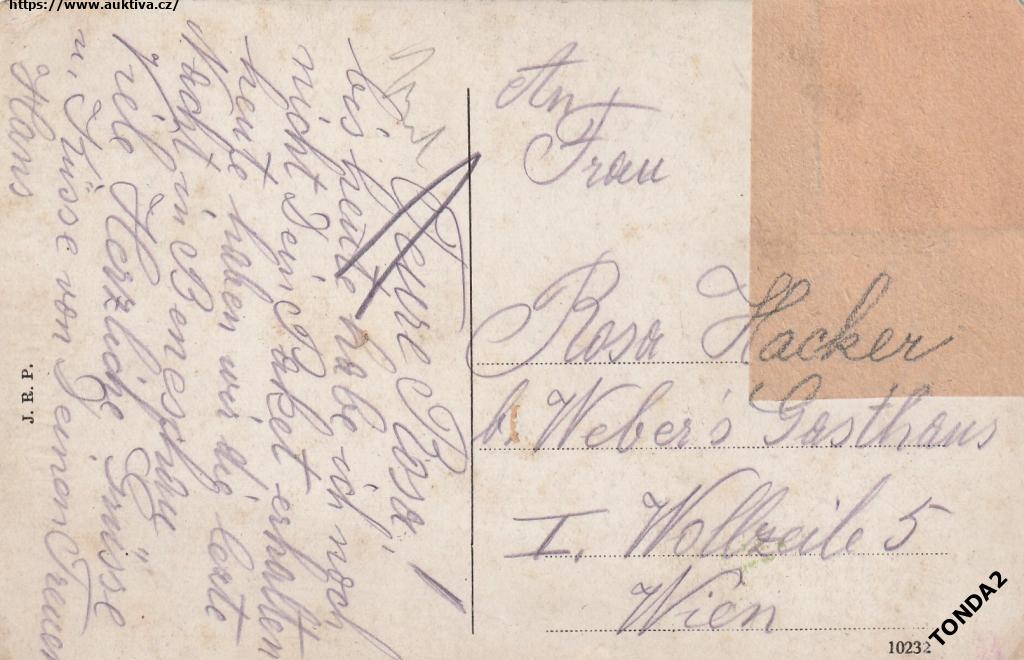 https://www.auktiva.cz/
Teure Rosa!
bis heute habe ich noch
nicht Dein Paket erhalten
heute haben wir die lezte
Nacht in Beneschau
viele Herzliche Grüsse
u. Küsse von Deinen Treuen
Hans
J. R. P.
An
Frau
Rosa Hacker
b. Weber's Gasthaus
I. Wollzeile 5
Wien
10232
TONDA2